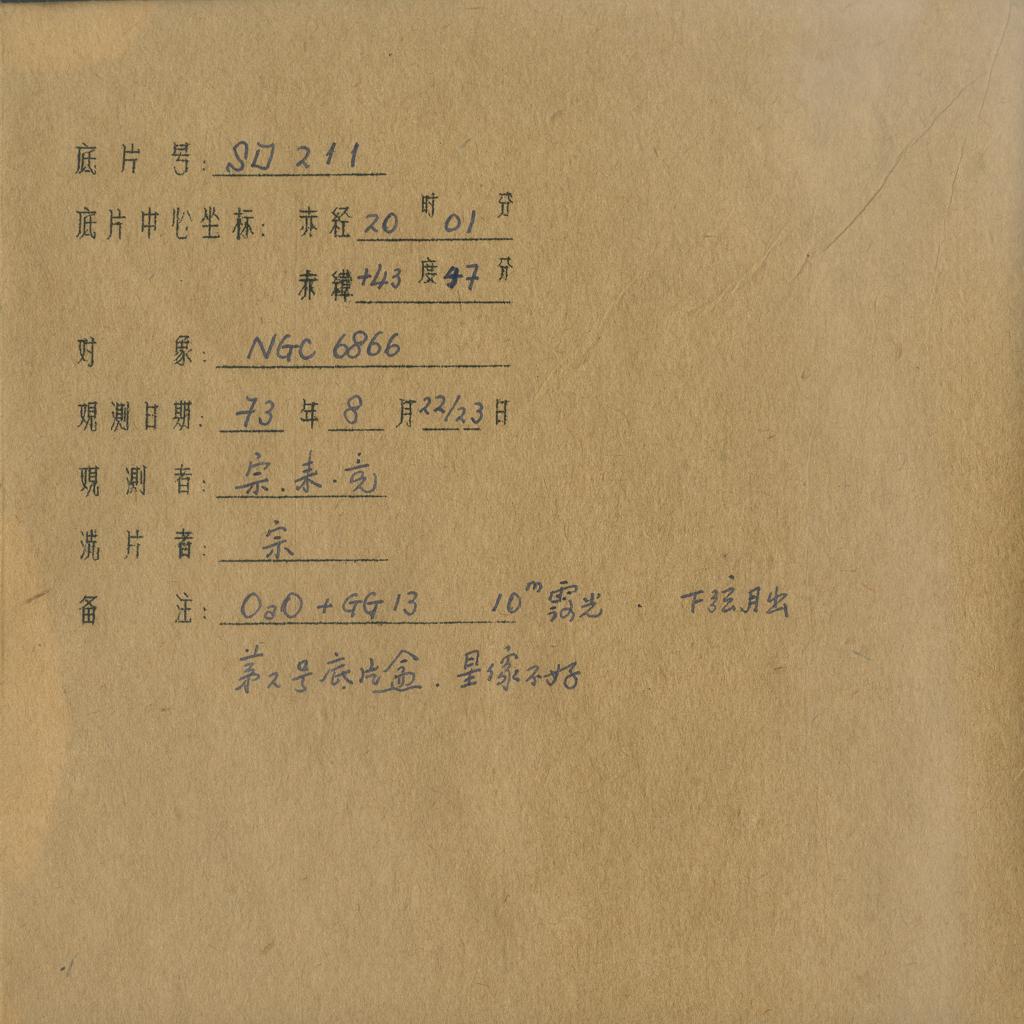 底片号: SD 211
底片中心坐标: 赤经 20 时 01 分
赤緯 +43 度 47 分
对象: NGC 6866
观测日期: 73 年 8 月 22/23 日
观测者: 宗.耒.竞
洗片者: 宗
备注: OaO + GG 13 10ᵐ 露光 . 下弦月出
第2号底片盒. 星像不好